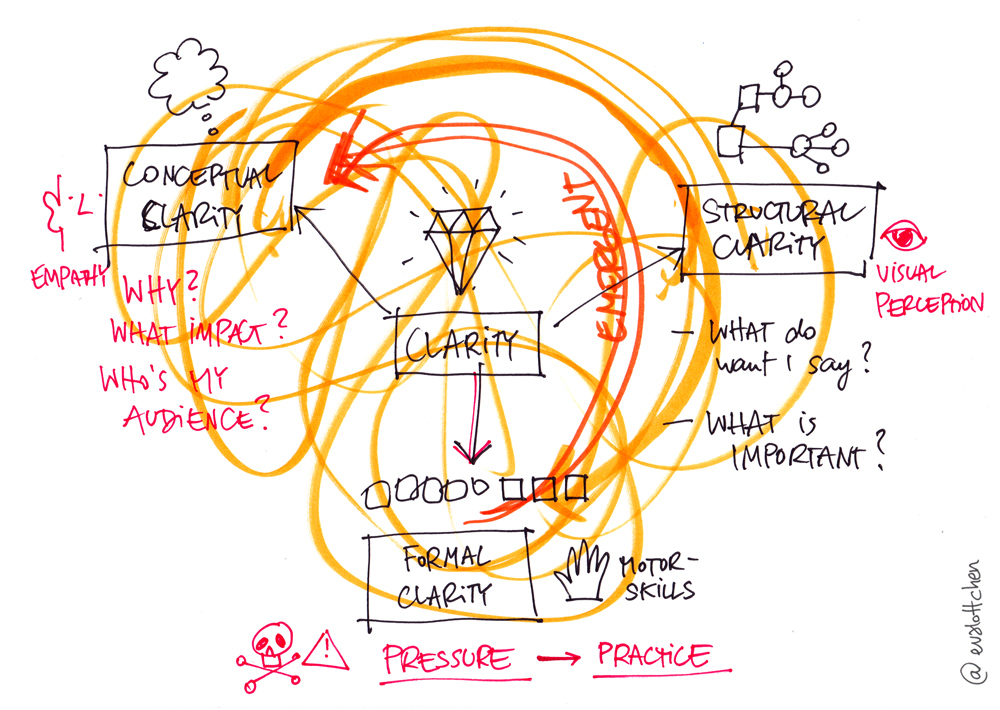 CONCEPTUAL
CLARITY
EMPATHY
WHY?
WHAT IMPACT?
WHO'S MY
AUDIENCE?
CLARITY
INTERPRETE
STRUCTURAL
CLARITY
VISUAL
PERCEPTION
- WHAT do
want I say?
- WHAT is
IMPORTANT?
FORMAL
CLARITY
MOTOR-
SKILLS
!
PRESSURE → PRACTICE
@evalottchen